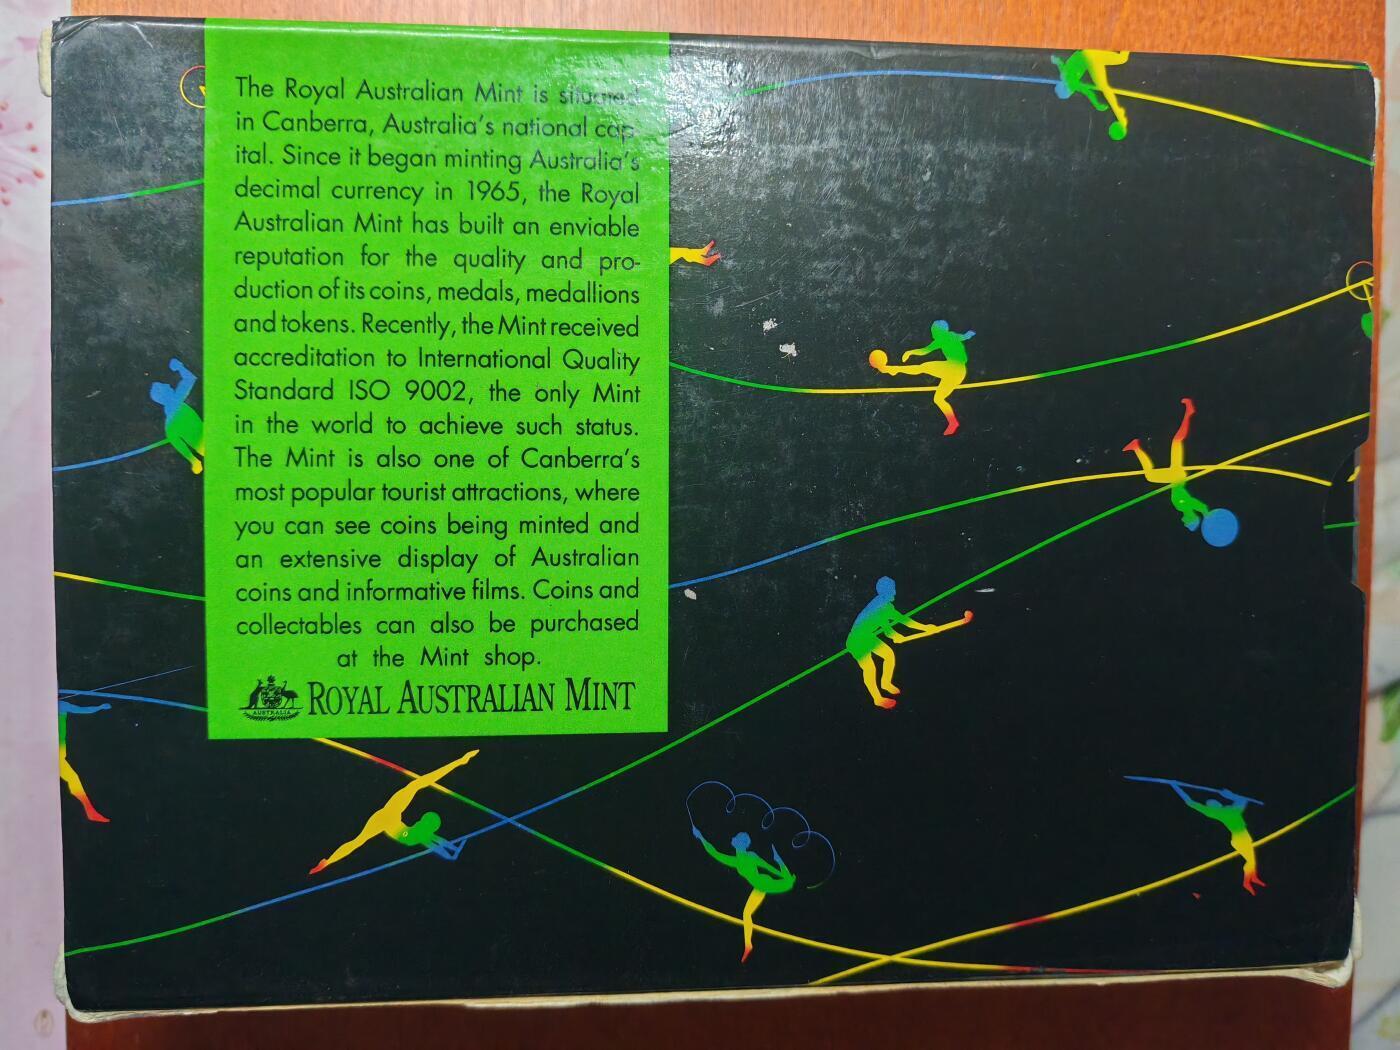 The Royal Australian Mint is situated
in Canberra, Australia's national cap-
ital. Since it began minting Australia's
decimal currency in 1965, the Royal
Australian Mint has built an enviable
reputation for the quality and pro-
duction of its coins, medals, medallions
and tokens. Recently, the Mint received
accreditation to International Quality
Standard ISO 9002, the only Mint
in the world to achieve such status.
The Mint is also one of Canberra's
most popular tourist attractions, where
you can see coins being minted and
an extensive display of Australian
coins and informative films. Coins and
collectables can also be purchased
at the Mint shop.
AUSTRALIA
ROYAL AUSTRALIAN MINT